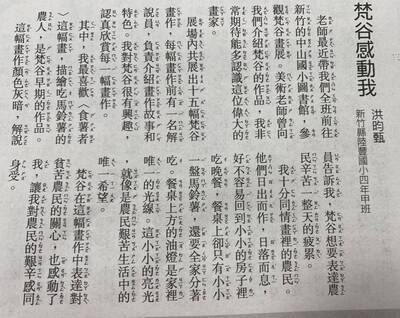 梵谷感動我
洪昀甄
新竹縣陸豐國小四年甲班
老師最近帶我們全班前往
新竹的中山國小圖書館，參
觀梵谷畫展。美術老師曾向
我們介紹梵谷的作品，我非
常期待能多認識這位偉大的
畫家。
展場內共展出十五幅梵谷
畫作，每幅畫作前有一名解
說員，負責介紹畫作故事和
特色。我對梵谷很有興趣，
認真欣賞每一幅畫作。
其中，我最喜歡〈食薯者
〉這幅畫，描繪吃馬鈴薯的
農人，是梵谷早期的作品。
這幅畫作顏色灰暗，解說
員告訴我，梵谷想要表達農
民辛苦一整天的疲累。
我十分同情畫裡的農民。
他們日出而作，日落而息，
好不容易回到小小房子裡
吃晚餐，餐桌上卻只有小小
一盤馬鈴薯，還要全家分著
吃。餐桌上方的油燈是家裡
唯一的光線。這小小的亮光
，就像是農民艱苦生活中的
唯一希望。
梵谷在這幅畫作中表達對
貧苦農民的關心，也感動了
我，讓我對農民的艱辛感同
身受。